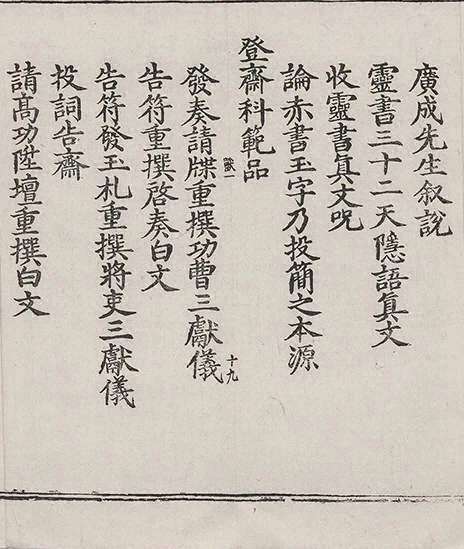 廣成先生叙說
靈書三十二天隱語真文
收靈書真文呪
論赤書玉字乃投簡之本源
登齋科範品
發奏請牒重撰功曹三獻儀 十九
告符重撰啓奏白文
告符發玉札重撰將吏三獻儀
投詞告齋
請髙功陞壇重撰白文